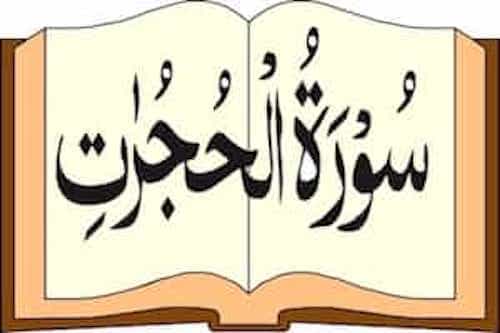 سُوْرَةُ الْحُجُرٰتِ